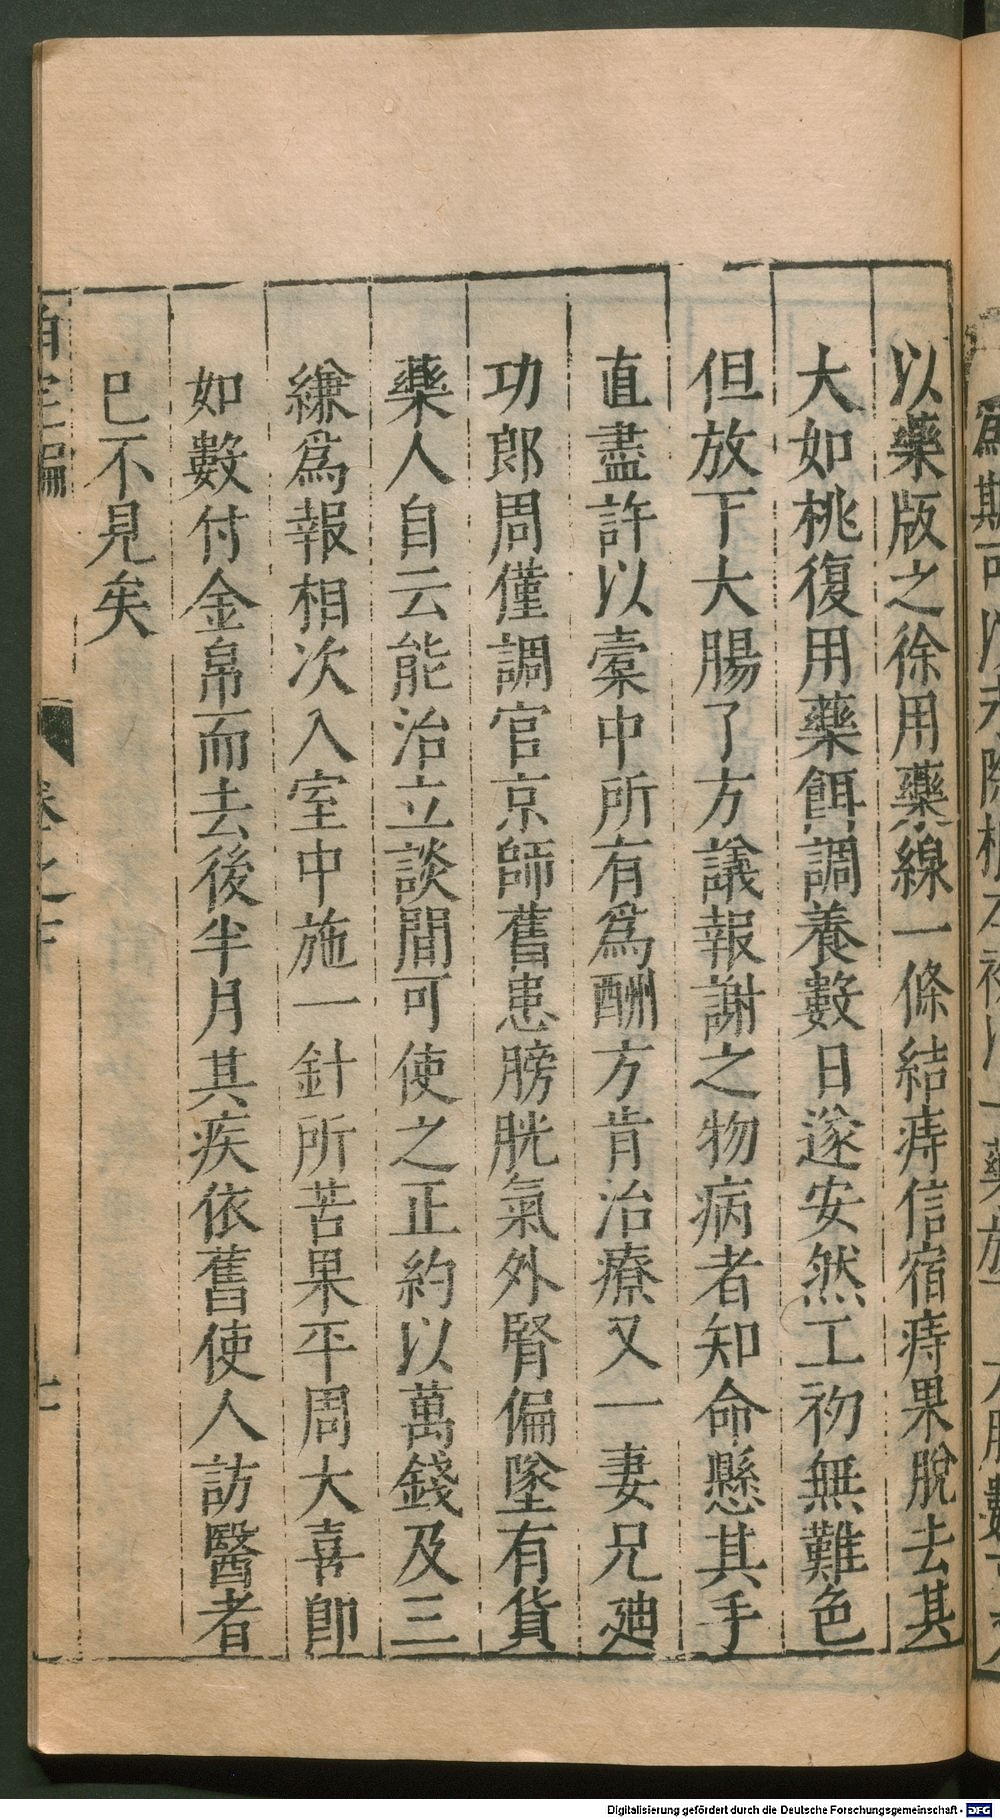 以藥版之徐用藥線一條結痔信宿痔果脫去其
大如桃復用藥餌調養數日遂安然工初無難色
但放下大腸了方議報謝之物病者知命懸其手
直盡許以橐中所有爲酬方肯治療又一妻兄迪
功郎周僅調官京師舊患膀胱氣外腎偏墜有貨
藥人自云能治立談間可使之正約以萬錢及三
縑爲報相次入室中施一針所苦果平周大喜即
如數付金帛而去後半月其疾依舊使人訪醫者
已不見矣
Digitalisierung gefördert durch die Deutsche Forschungsgemeinschaft - DFG